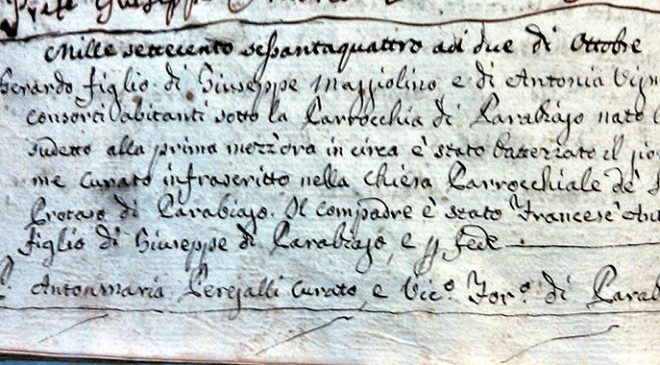 Prete Giuseppe
Mille settecento sessantaquattro adi due di Ottobre
Gerardo figlio di Giuseppe Mazziolino e di Antonia Vign
consorti abitanti sotto la Parrocchia di Parabiago nato
sudetto alla prima mezz'ora in circa è stato battezzato il gio
me curato infrascritto nella Chiesa Parrocchiale de' S
Protaso di Parabiago. Il compadre è stato Francesc' Ant
figlio di Giuseppe di Parabiago, e p fede
Antonmaria Perejalli Curato, e Vic.º For.º di Parab